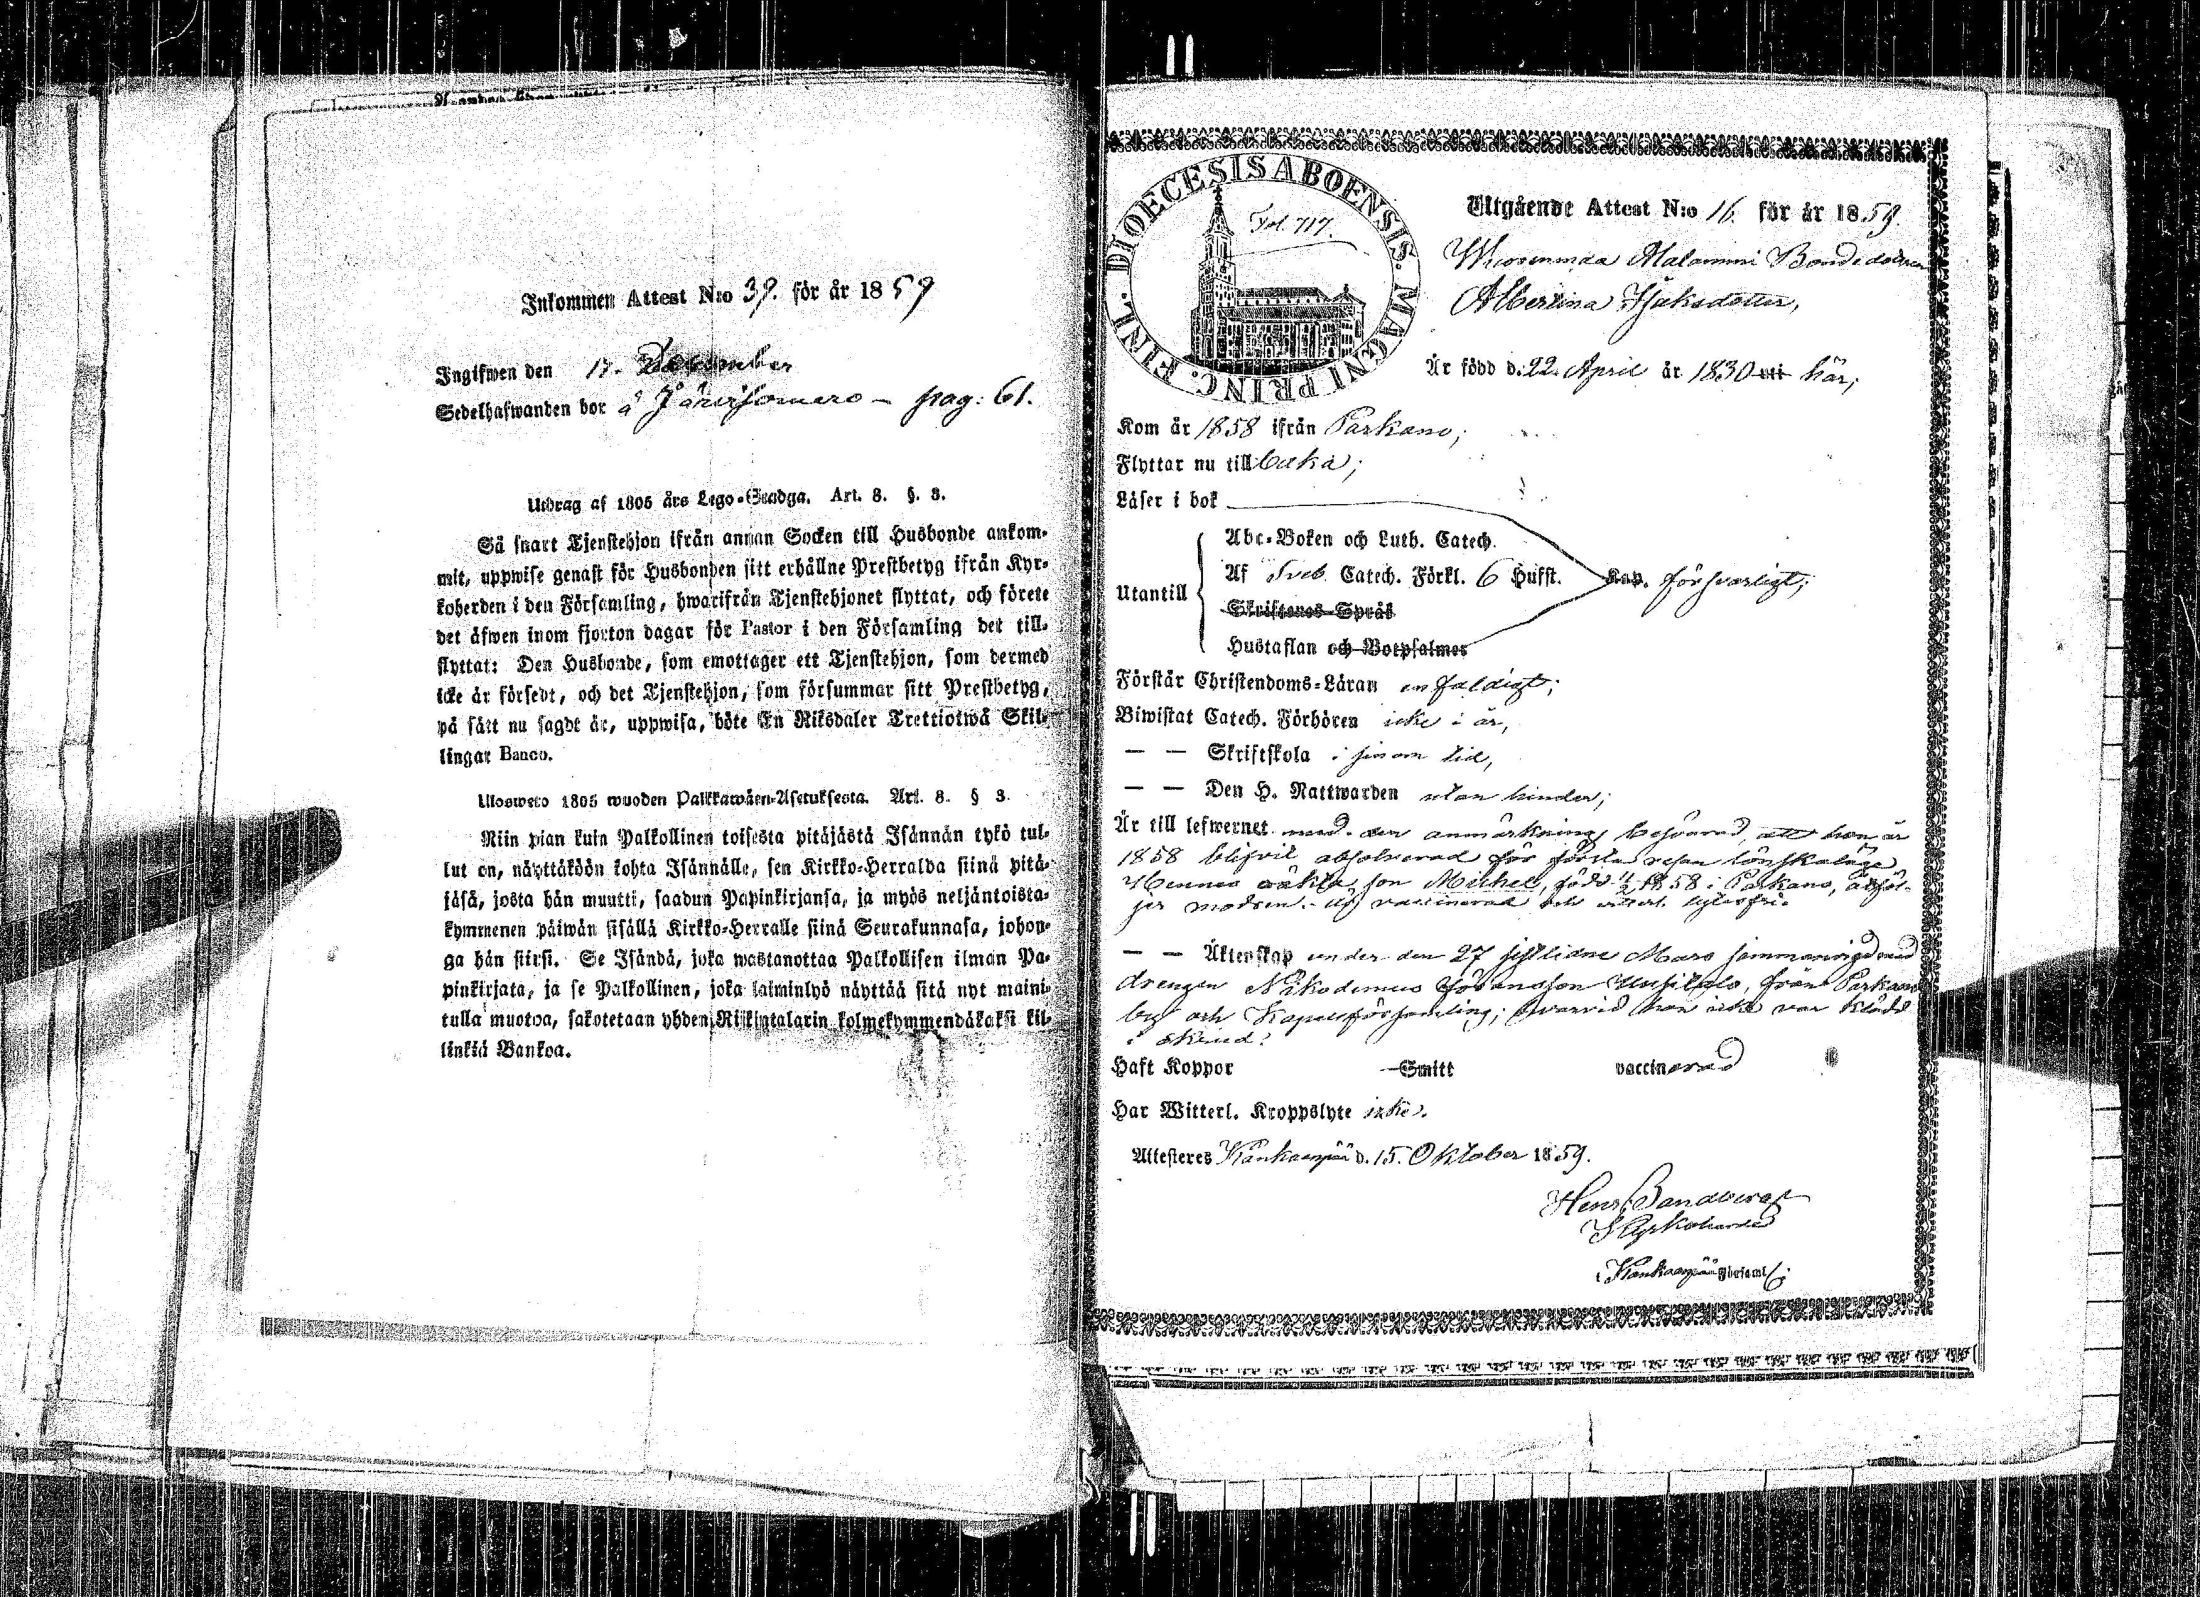 Inkommen Attest N:o 39. för år 1859
Ingifwen den 17. December
Sedelhafwanden bor å pag: 61.
Utdrag af 1805 års Lego-Stadga. Art. 8. §. 3.
Så snart Tjenstehjon ifrån annan Socken till Husbonde ankom-
mit, uppwise genast för Husbonden sitt erhållne Prestbetyg ifrån Kyr-
koherden i den Församling, hwarifrån Tjenstehjonet flyttat, och förete
det äfwen inom fjorton dagar för Pastor i den Församling det till-
flyttat: Den Husbonde, som emottager ett Tjenstehjon, som dermed
icke är försedt, och det Tjenstehjon, som försummar sitt Prestbetyg,
på sätt nu sagdt är, uppwisa, böte En Riksdaler Trettiotwå Skil-
lingar Banco.
Ulosweto 1805 wuoden Palkkawäen-Asetuksesta. Art. 8. § 3.
Niin pian kuin Palkollinen toisesta pitäjästä Isännän tykö tul-
lut on, näyttäköön kohta Isännälle, sen Kirkko-Herralda siinä pitä-
jäsä, josta hän muutti, saadun Papinkirjansa, ja myös neljäntoista-
kymmenen päiwän sisällä Kirkko-Herralle siinä Seurakunnasa, johon-
ga hän siirsi. Se Isändä, joka wastanottaa Palkollisen ilman Pa-
pinkirjata, ja se Palkollinen, joka laiminlyö näyttää sitä nyt maini-
tulla muotoa, sakotetaan yhden Riskintalarin kolmekymmendäkaksi kil-
linkiä Bankoa.
DIOECESIS ABOENSIS. MAGNI PRINC. FINL.
Fol. 717.
Utgående Attest N:o 16. för år 1859.
Malammi Bondedottren
Albertina Isaksdotter,
Är född d. 22. April år 1830 uti här;
Kom år 1858 ifrån Parkano;
Flyttar nu till
Läser i bok
Utantill
Abc-Boken och Luth. Catech.
Af Sveb. Catech. Förkl. 6 Hufst. Kap. försvarligt;
Skriftenes Språk
Hustaflan och Botpsalmer
Förstår Christendoms-Läran enfaldigt;
Biwistat Catech. Förhören icke i år,
— — Skriftskola i sinom tid,
— — Den H. Nattwarden utan hinder;
Är till lefwernet med den anmärkning besvärad, att hon år
1858 blifvit absolverad för första resan lönskaläge
Hennes oäkta son Michel, född 1858 i Parkano, åtföl-
jer modren.
— — Äktenskap under den 27 sistlidne Mars sammanvigd med
drengen Nikodemus Johansson Uusitalo, från Parkano
by och Kapellförsamling; hvarvid hon icke var klädd
i skrud.
Haft Koppor Smitt vaccinerad
Har Witterl. Kroppslyte icke.
Attesteres Kankaanpää d. 15. Oktober 1859.
Henr. Sandberg
Kyrkoherde
i Kankaanpää Församl.